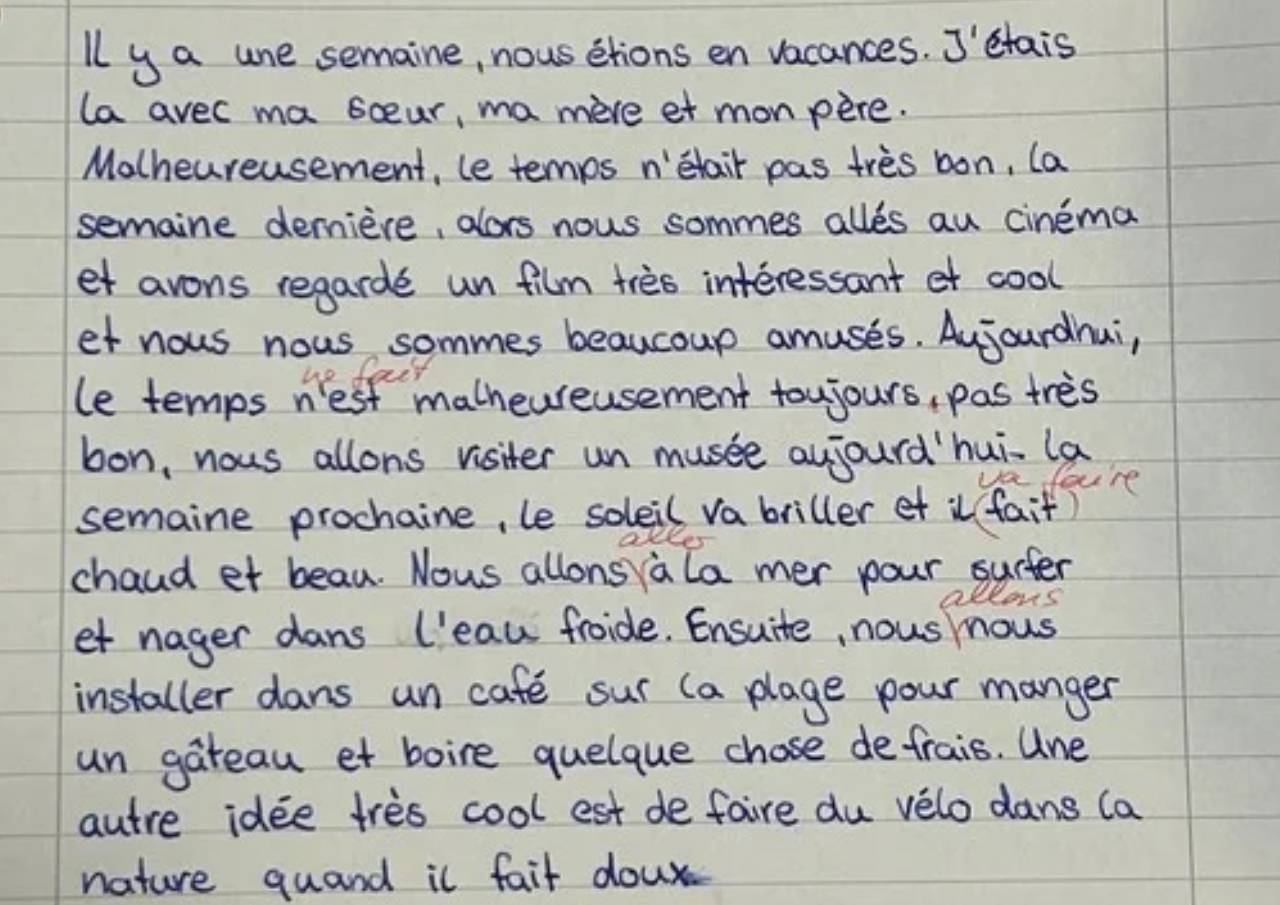 Il y a une semaine, nous étions en vacances. J'étais
la avec ma sœur, ma mère et mon père.
Malheureusement, le temps n'était pas très bon, la
semaine dernière, alors nous sommes allés au cinéma
et avons regardé un film très intéressant et cool
et nous nous sommes beaucoup amusés. Aujourdhui,
ne fait
le temps n'est malheureusement toujours, pas très
bon, nous allons visiter un musée aujourd'hui. La
va faire
semaine prochaine, le soleil va briller et il (fait)
aller
chaud et beau. Nous allons à la mer pour surfer
allons
et nager dans l'eau froide. Ensuite, nous nous
installer dans un café sur la plage pour manger
un gâteau et boire quelque chose de frais. Une
autre idée très cool est de faire du vélo dans la
nature quand il fait doux